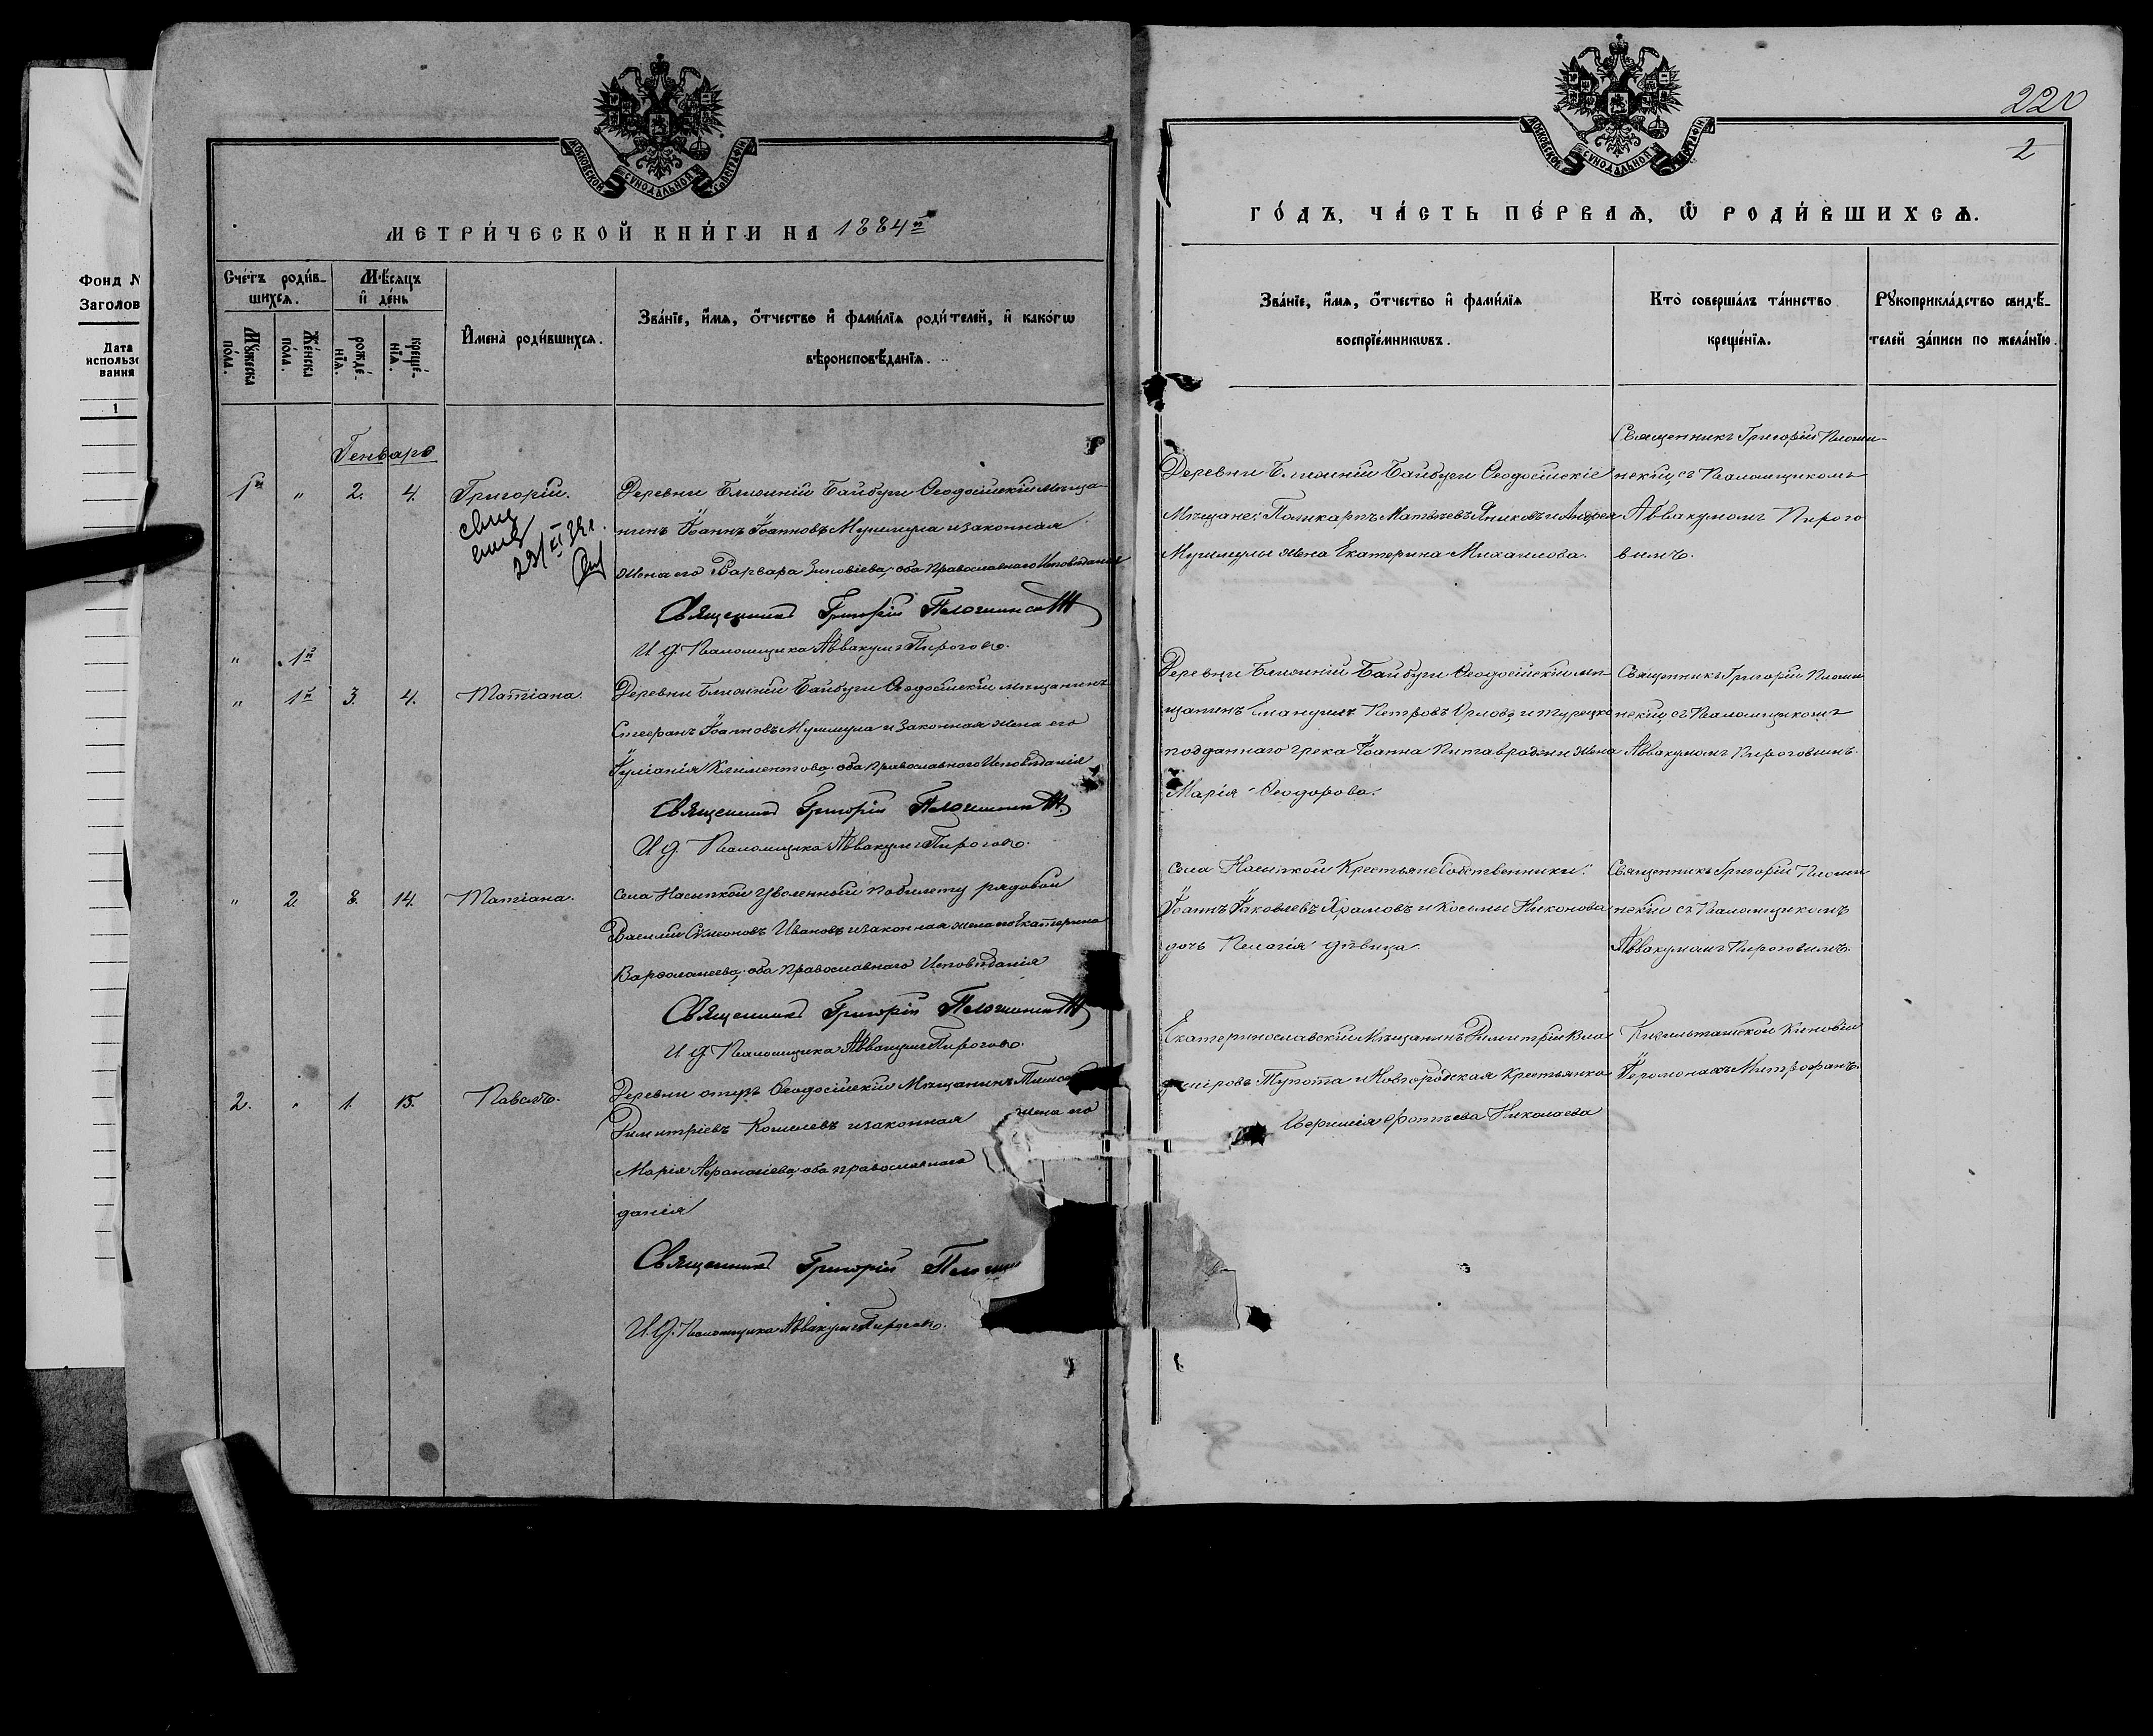 Фонд N
Заголов
Дата
использо
вания
1
МОСКОВСКОЙ СѴНОДАЛЬНОЙ ТѴПОГРАФІИ
МЕТРИ́ЧЕСКОЙ КНИ́ГИ НА 1884й
Сче́тъ роди́в-
шихсѧ.
Мѣ́сѧцъ
и҆ де́нь
Мꙋ́жеска
по́ла.
Же́нска
по́ла.
рожде́-
нїѧ.
креще́-
нїѧ.
И҆мена̀ роди́вшихсѧ.
Зва́нїе, и҆́мѧ, ѻ҆́тчество и҆ фами́лїѧ роди́телей, и҆ како́гѡ
вѣроисповѣ́данїѧ.
Генварь
1й " 2. 4. Григорій.
Деревни Ближній Байбуги Ѳеодосійскій мѣща-
нинъ Іоаннъ Іоанновъ Мушмула и законная
жена его Варвара Зиновіева, оба Православнаго Исповѣданія
Священникъ Григорій
И. д. Псаломщика Аввакумъ Пироговъ.
" 1й
" 1й 3. 4. Татіана.
Деревни Ближній Байбуги Ѳеодосійскій мѣщанинъ
Стефанъ Іоанновъ Мушмула и законная жена его
Іуліанія Климентова, оба православнаго Исповѣданія
Священникъ Григорій
И. д. Псаломщика Аввакумъ Пироговъ.
" 2. 8. 14. Татіана.
Села Насыпкой уволенный по билету рядовой
Василій Сѵмеоновъ Ивановъ и законная жена его Екатерина
Варѳоломеева, оба православнаго Исповѣданія
Священникъ Григорій
И. д. Псаломщика Аввакумъ Пироговъ.
2. " 1. 15. Павелъ.
Деревни Ѳеодосійскій Мѣщанинъ
Димитріевъ Кошелевъ и законная жена его
Марія Аѳанасіева, оба православнаго
данія
Священникъ Григорій
И. д. Псаломщика Аввакумъ Пироговъ.
220
2
МОСКОВСКОЙ СѴНОДАЛЬНОЙ ТѴПОГРАФІИ
ГО́ДЪ, ЧА́СТЬ ПЕ́РВАѦ, Ѡ҆ РОДИ́ВШИХСѦ.
Зва́нїе, и҆́мѧ, ѻ҆́тчество и҆ фами́лїѧ
воспрїе́мникѡвъ.
Кто̀ соверша́лъ та́инство
креще́нїѧ.
Рꙋкоприкла́дство свидѣ́-
телей за́писи по жела́нїю.
Деревни Ближній Байбуги Ѳеодосійскіе
Мѣщане: Поликарпъ Матвѣевъ Яниковъ и Андрея
Мушмулы жена Екатерина Михаилова.
Священникъ Григорій Плоти-
нскій, съ Псаломщикомъ
Аввакумомъ Пирого
вымъ.
Деревни Ближній Байбуги Ѳеодосійскій мѣ-
щанинъ Емануилъ Петровъ Орловъ, и турецко
подданнаго грека Іоанна жена
Марія Ѳеодорова.
Священникъ Григорій Плоти
нскій, съ Псаломщикомъ
Аввакумомъ Пироговымъ.
Села Насыпкой Крестьяне Собственники:
Іоаннъ Іаковлевъ Храмовъ и Косьмы Никонова
дочь Пелагія дѣвица.
Священникъ Григорій Плоти
нскій съ Псаломщикомъ
Аввакумомъ Пироговымъ.
Екатеринославскій Мѣщанинъ Димитрій Вла
диміровъ Тупота и Новгородская Крестьянка
Фотіева Николаева
Кизильташской Киновіи
Іеромонахъ Митрофанъ.